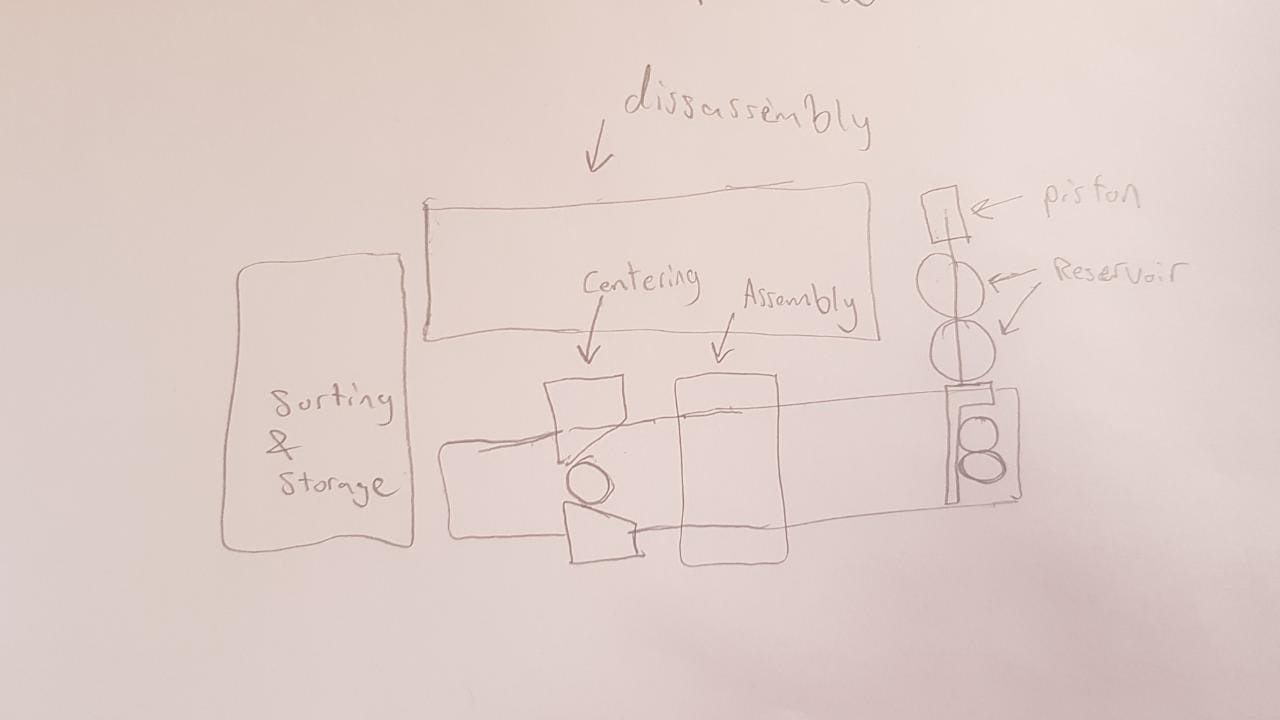 dissassembly
piston
Reservoir
Centering
Assembly
Sorting
&
Storage